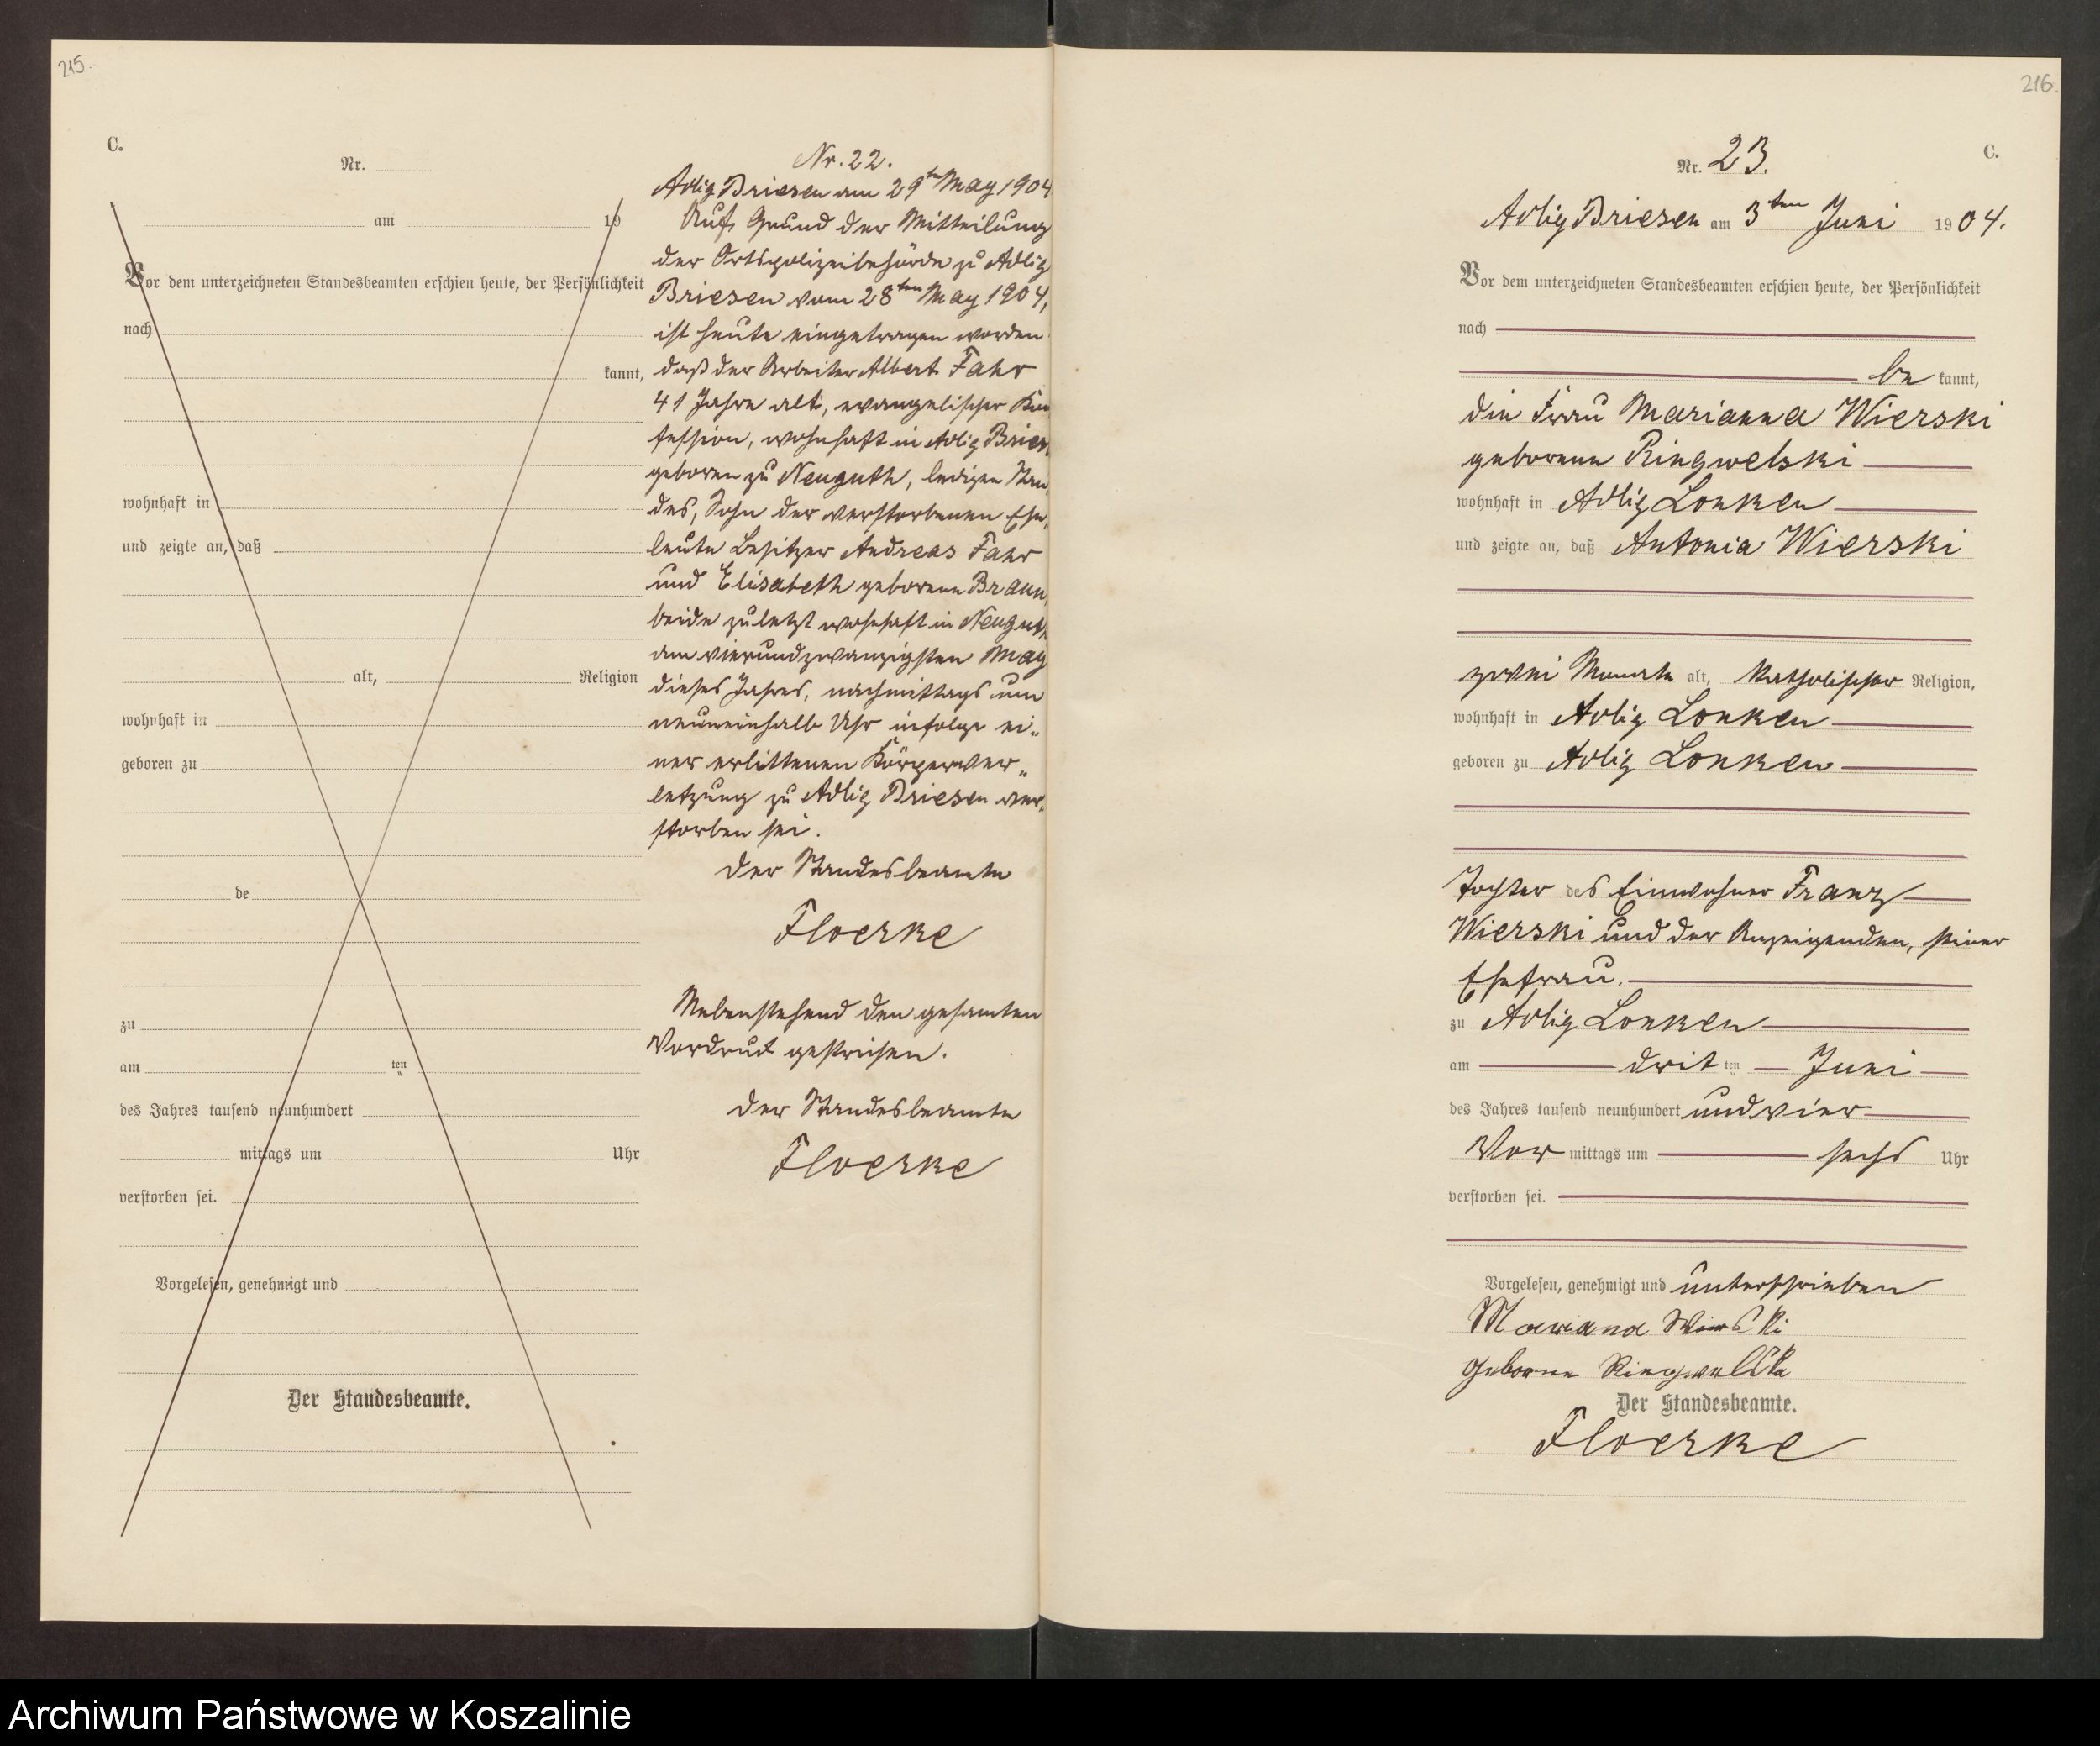 215.
C.
Nr.
am 19
Vor dem unterzeichneten Standesbeamten erschien heute, der Persönlichkeit
nach
kannt,
wohnhaft in
und zeigte an, daß
alt, Religion
wohnhaft in
geboren zu
de
zu
am ten
des Jahres tausend neunhundert
mittags um Uhr
verstorben sei.
Vorgelesen, genehmigt und
Der Standesbeamte.
Nr. 22.
Adlig Briesen am 29ten May 1904
Auf Grund der Mitteilung
der Ortspolizeibehörde zu Adlig
Briesen vom 28ten May 1904,
ist heute eingetragen worden
daß der Arbeiter Albert Fahr
41 Jahre alt, evangelischer Kon
fession, wohnhaft in Adlig Briesen
geboren zu Neuguth, ledigen Stan
des, Sohn der verstorbenen Ehe„
leute Besitzer Andreas Fahr
und Elisabeth geborene Braun,
beide zuletzt wohnhaft in Neuguth
am vierundzwanzigsten May
dieses Jahres, nachmittags um
neuneinhalb Uhr infolge ei„
ner erlittenen Körperver„
letzung zu Adlig Briesen ver„
storben sei.
Der Standesbeamte
Floerke
Nebenstehend den gesamten
Vordruck gestrichen.
Der Standesbeamte
Floerke
216.
C.
Nr. 23.
Adlig Briesen am 3ten Juni 1904.
Vor dem unterzeichneten Standesbeamten erschien heute, der Persönlichkeit
nach
be kannt,
die Frau Marianna Wierski
geborene Ringwelski
wohnhaft in Adlig Lonken
und zeigte an, daß Antonia Wierski
zwei Monate alt, katholischer Religion,
wohnhaft in Adlig Lonken
geboren zu Adlig Lonken
Tochter des Einwohner Franz
Wierski und der Anzeigenden, seiner
Ehefrau.
zu Adlig Lonken
am dritten Juni
des Jahres tausend neunhundert und vier
Vor mittags um sechs Uhr
verstorben sei.
Vorgelesen, genehmigt und unterschrieben
Mariana Wierski
geborne Ringwelska
Der Standesbeamte.
Floerke
Archiwum Państwowe w Koszalinie